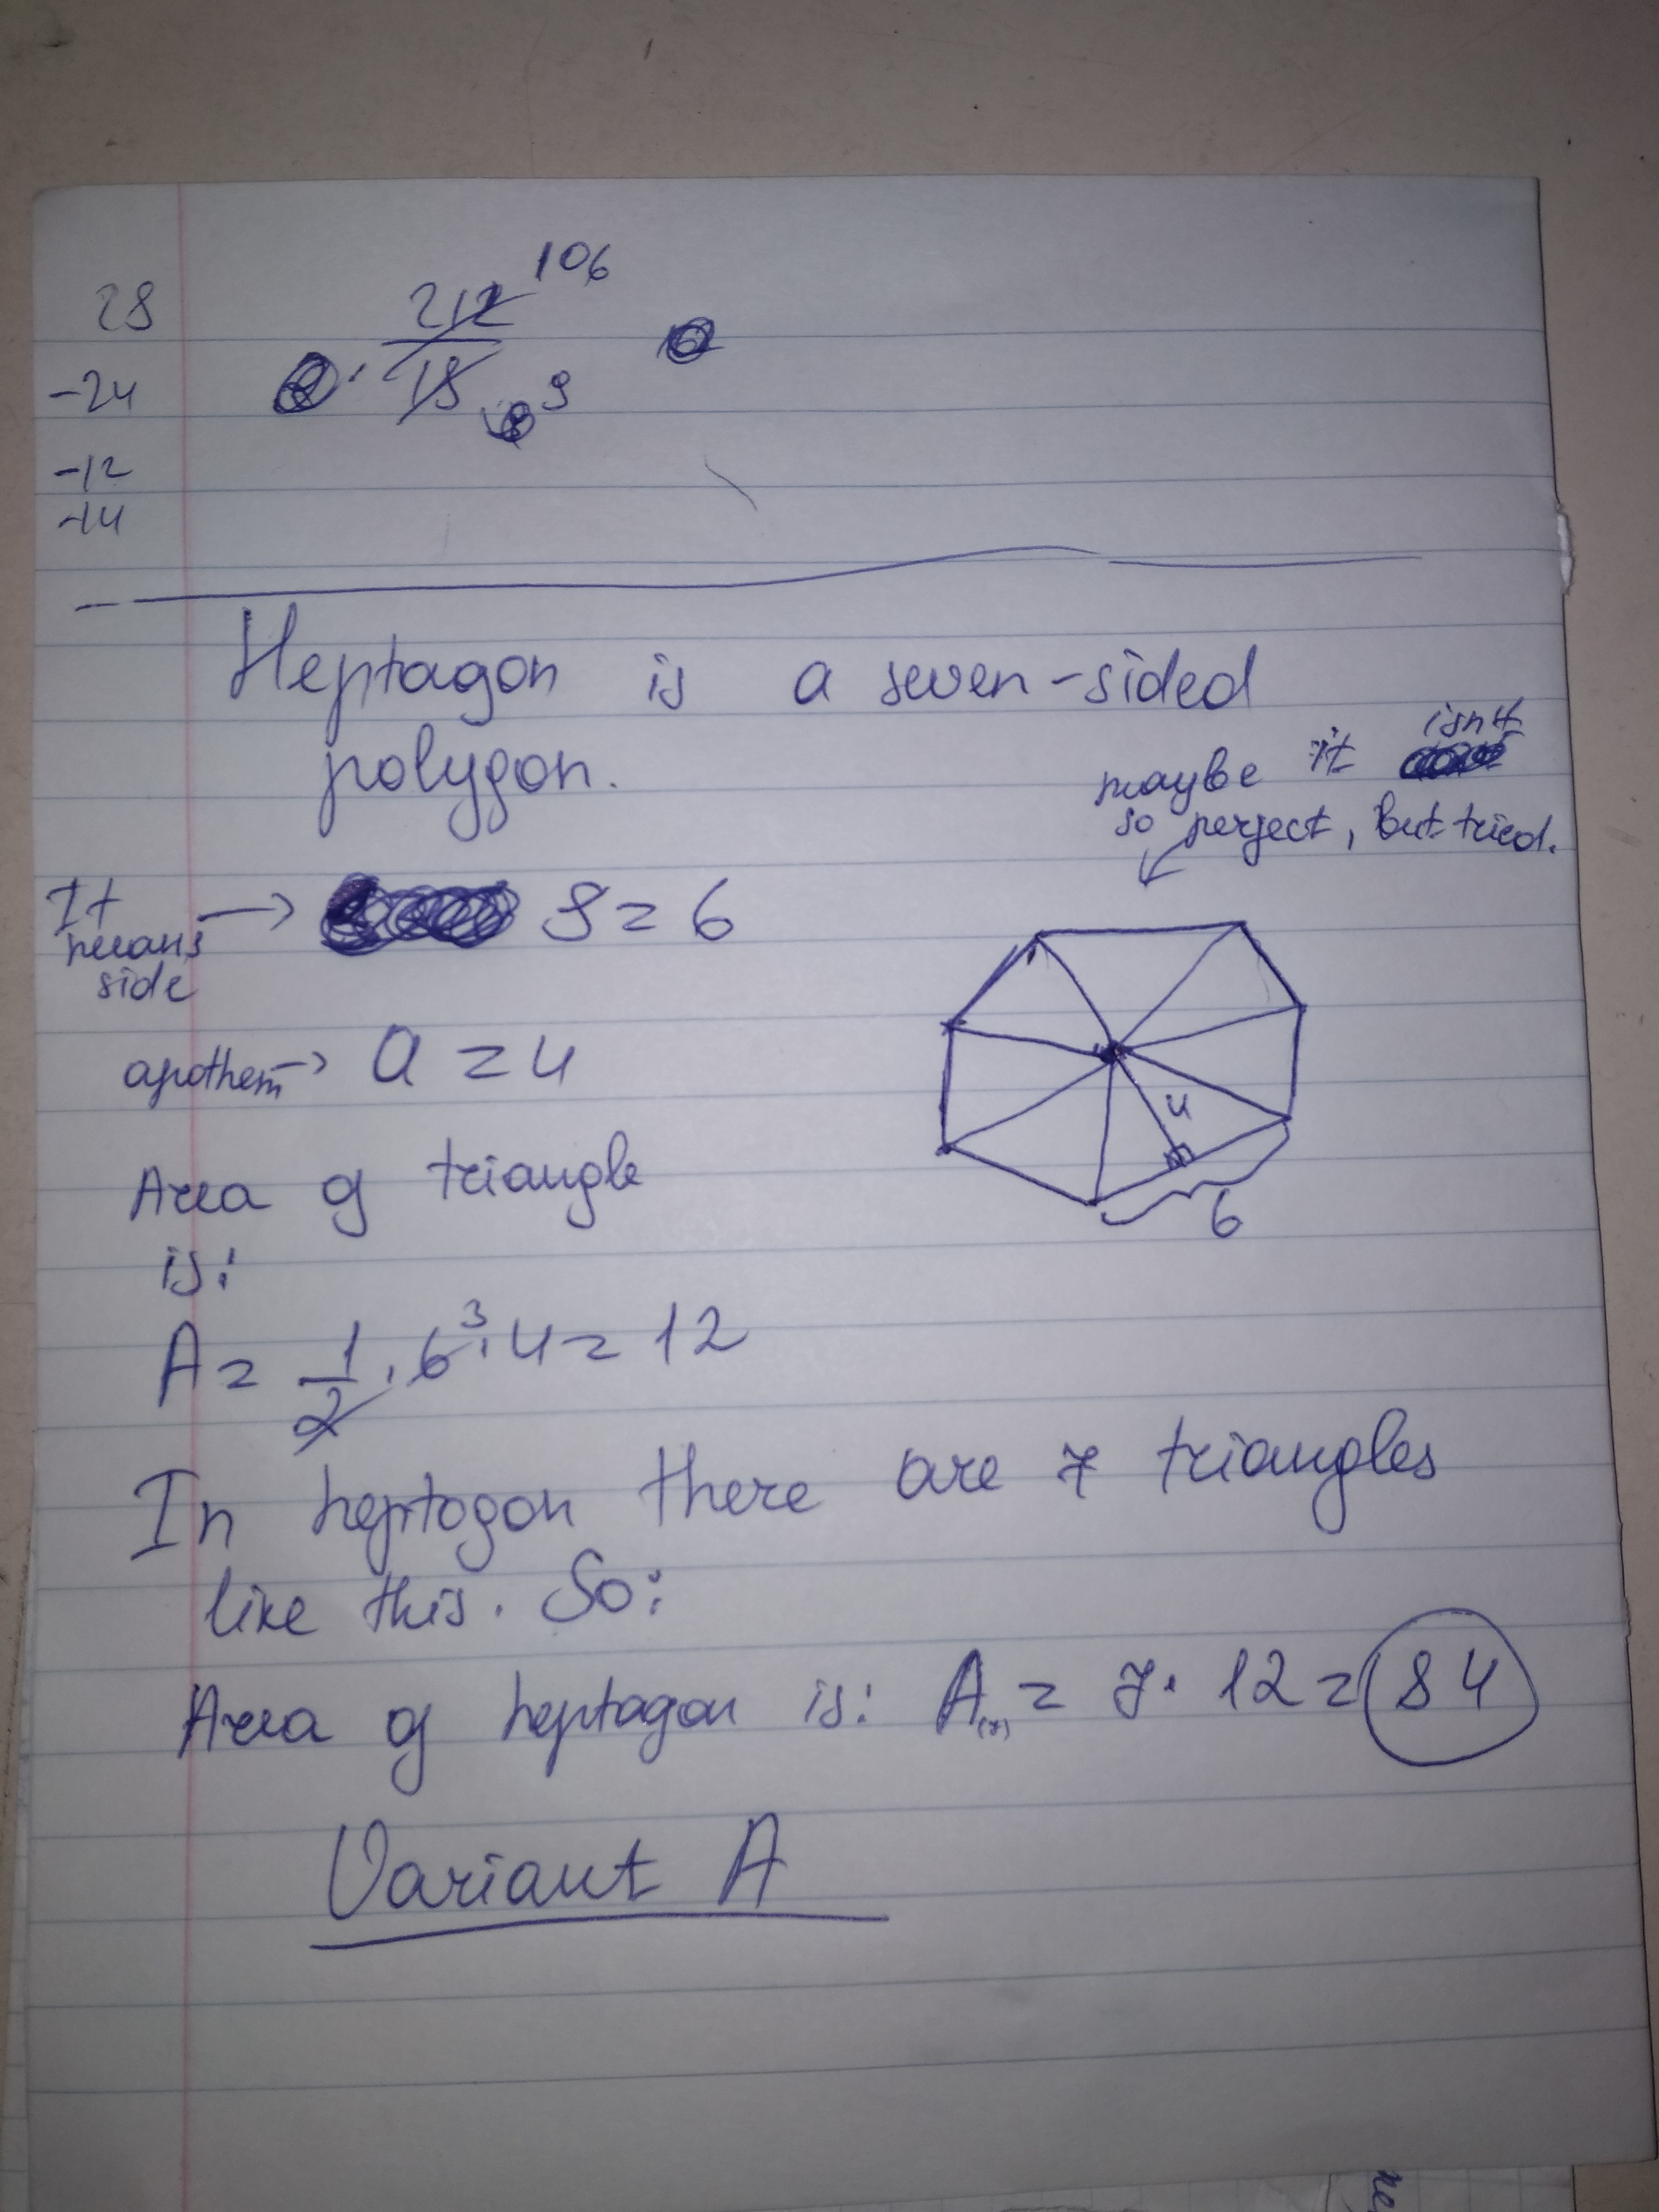 106
28 212
-24 18 9
-12
-14
Heptagon is a seven-sided
polygon.
maybe it isn't
so perfect, but tried.
It means side → S = 6
apothem → a = 4
4
6
Area of triangle
is:
A = 1/2 · 6 3 · 4 = 12
In heptogon there are 7 triangles
like this. So:
Area of heptagon is: A(7) = 7 · 12 = 84
Variant A